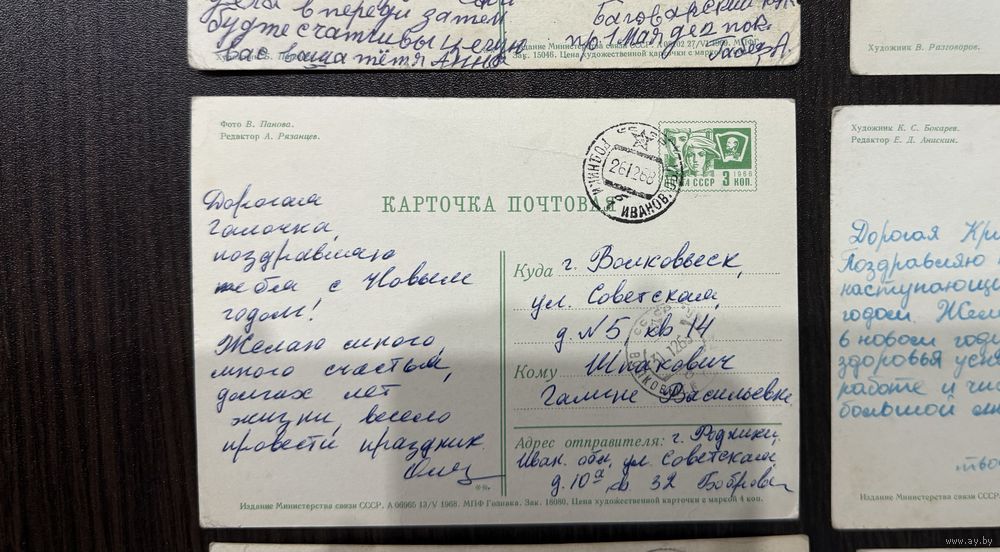 дела впереди затем
будте счастливы целую
вас ваша тётя Анна
Баговарский
по 1 Мая де 2 пок.
Издание Министерства связи СССР.
Зак. 15046. Цена художественной карточки с маркой
Художник В. Разговоров.
Фото В. Панова.
Редактор А. Рязанцев.
КАРТОЧКА ПОЧТОВАЯ
СССР
26 12 68
ИВАНОВ. ОБЛ.
1966
ПОЧТА СССР 3 КОП.
Дорогая
Галочка,
поздравляю
тебя с Новым
годом!
Желаю много,
много счастья,
долгих лет
жизни, весело
провести праздник.
Куда г. Волковыск,
ул. Советская,
д. N 5 кв. 14
Кому Шпакович
Галине Васильевне
Адрес отправителя: г. Родники,
Иван. обл, ул. Советская,
д. 10а, кв 32 Боброва
Издание Министерства связи СССР. А 06965 13/V 1968. МПФ Гознака. Зак. 16080. Цена художественной карточки с маркой 4 коп.
Художник К. С. Бокарев.
Редактор Е. Д. Анискин.
Дорогая
Поздравляю
наступающ
годом. Жел
в новом год
здоровья усп
работе и
большой
тво
www.ay.by